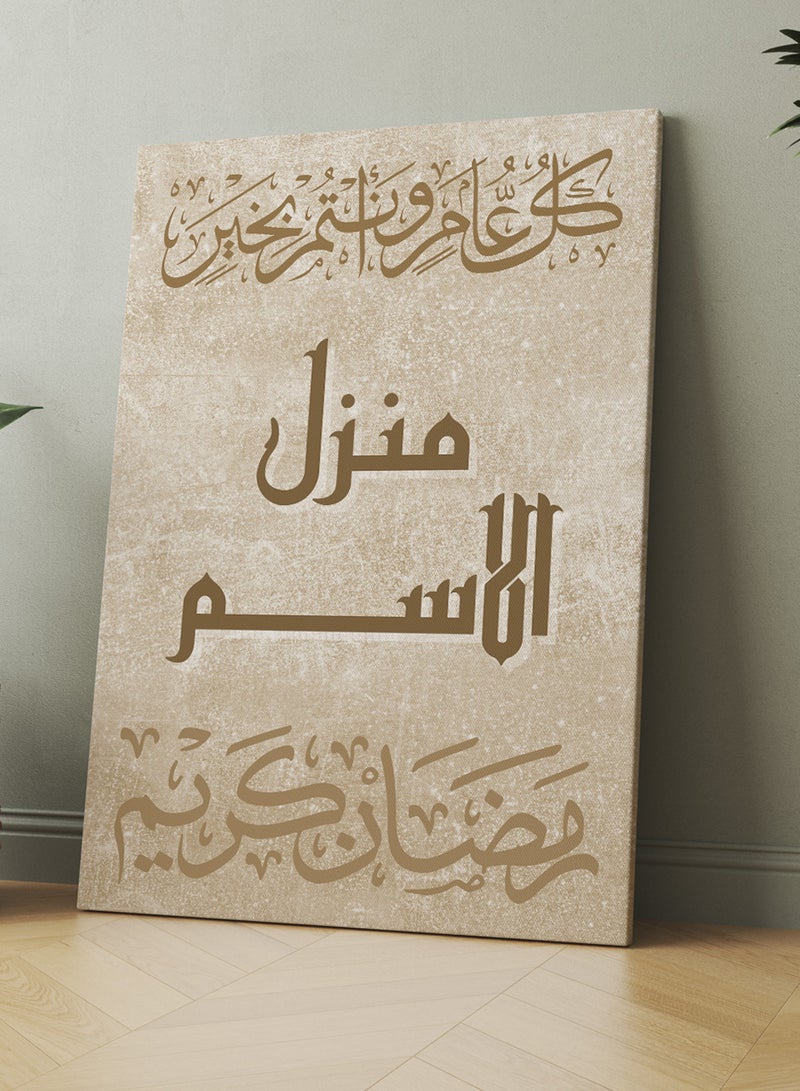 كُلُّ عَامٍ وَأَنتُمْ بِخَيْرٍ
منزل
الاسم
رَمَضَان كَرِيم